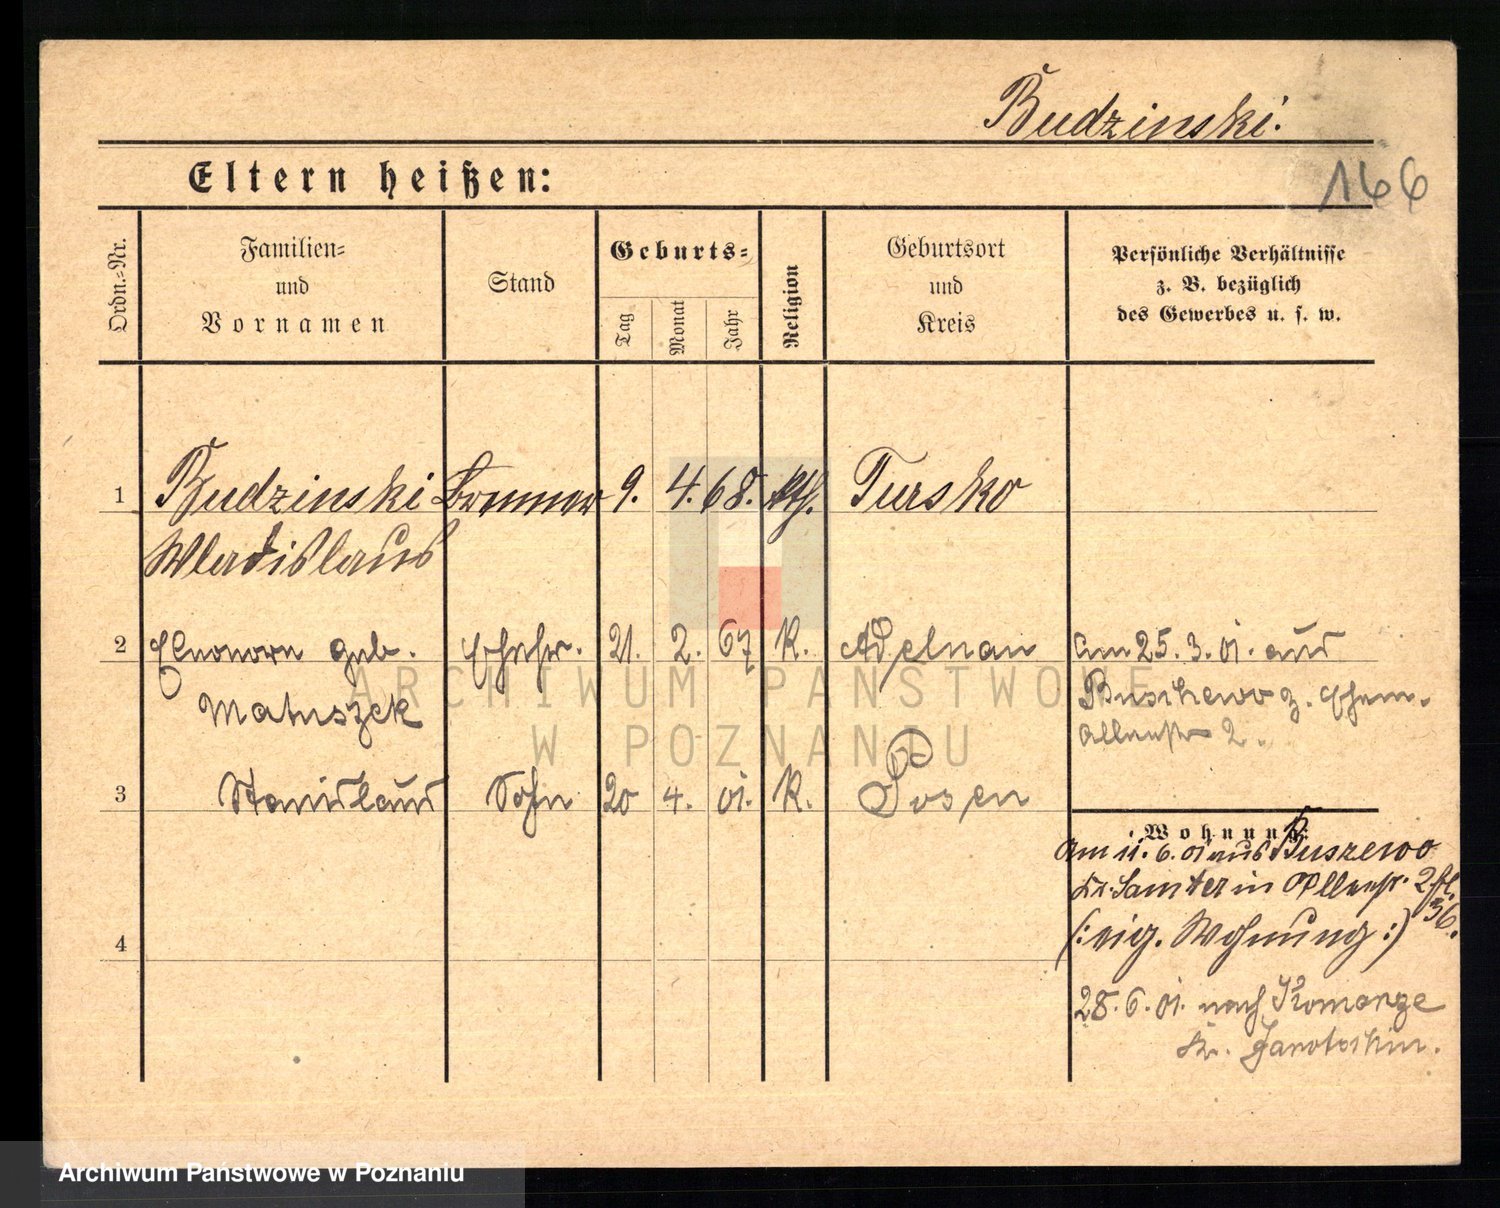 Budzinski.
166
Eltern heißen:
Ordn.-Nr.
Familien-
und
Vornamen
Stand
Geburts-
Tag
Monat
Jahr
Religion
Geburtsort
und
Kreis
Persönliche Verhältnisse
z. B. bezüglich
des Gewerbes u. s. w.
1 Budzinski Brenner 9. 4. 68. kth. Tursko
Wladislaus
2 Eleonora geb. Ehefr. 21. 2. 67 K. Adelnau
Matuszek
am 25. 3. 01. aus
Buschewo z. Ehem.
Allerstr 2.
3 Stanislaus Sohn 20 4. 01. K. Posen
Wohnung:
am 11. 6. 01 aus Buszewo
Kr. Samter in Allerstr. 2
36.
(: eig. Wohnung :)
4
28. 6. 01. nach Komorze
Kr. Jarotschin.
ARCHIWUM PAŃSTWOWE
W POZNANIU
Archiwum Państwowe w Poznaniu